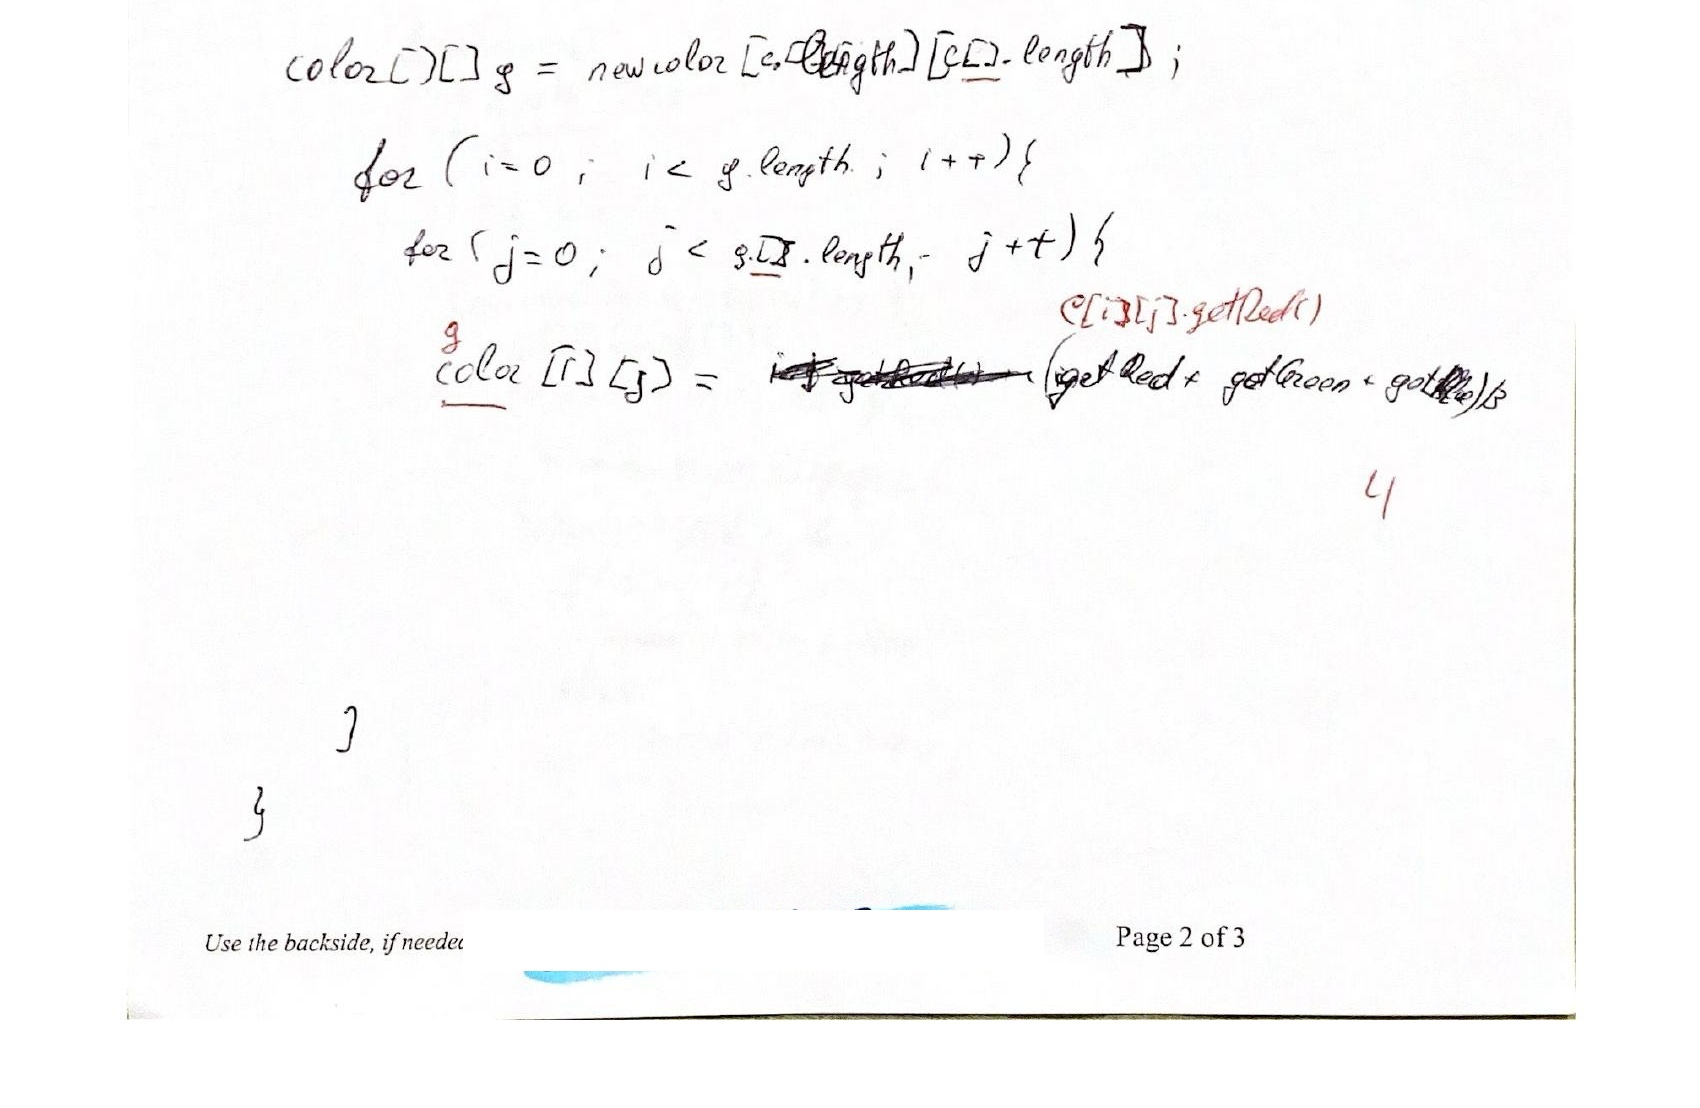 color[][] g = new color [c.length][c[].length];
for (i=0; i< g.length; i++){
for (j=0; j< g.[].length; j++){
c[i][j].getRed()
g
color [i][j] = (getRed + getGreen + getBlue)/3
4
}
}
Use the backside, if neede
Page 2 of 3